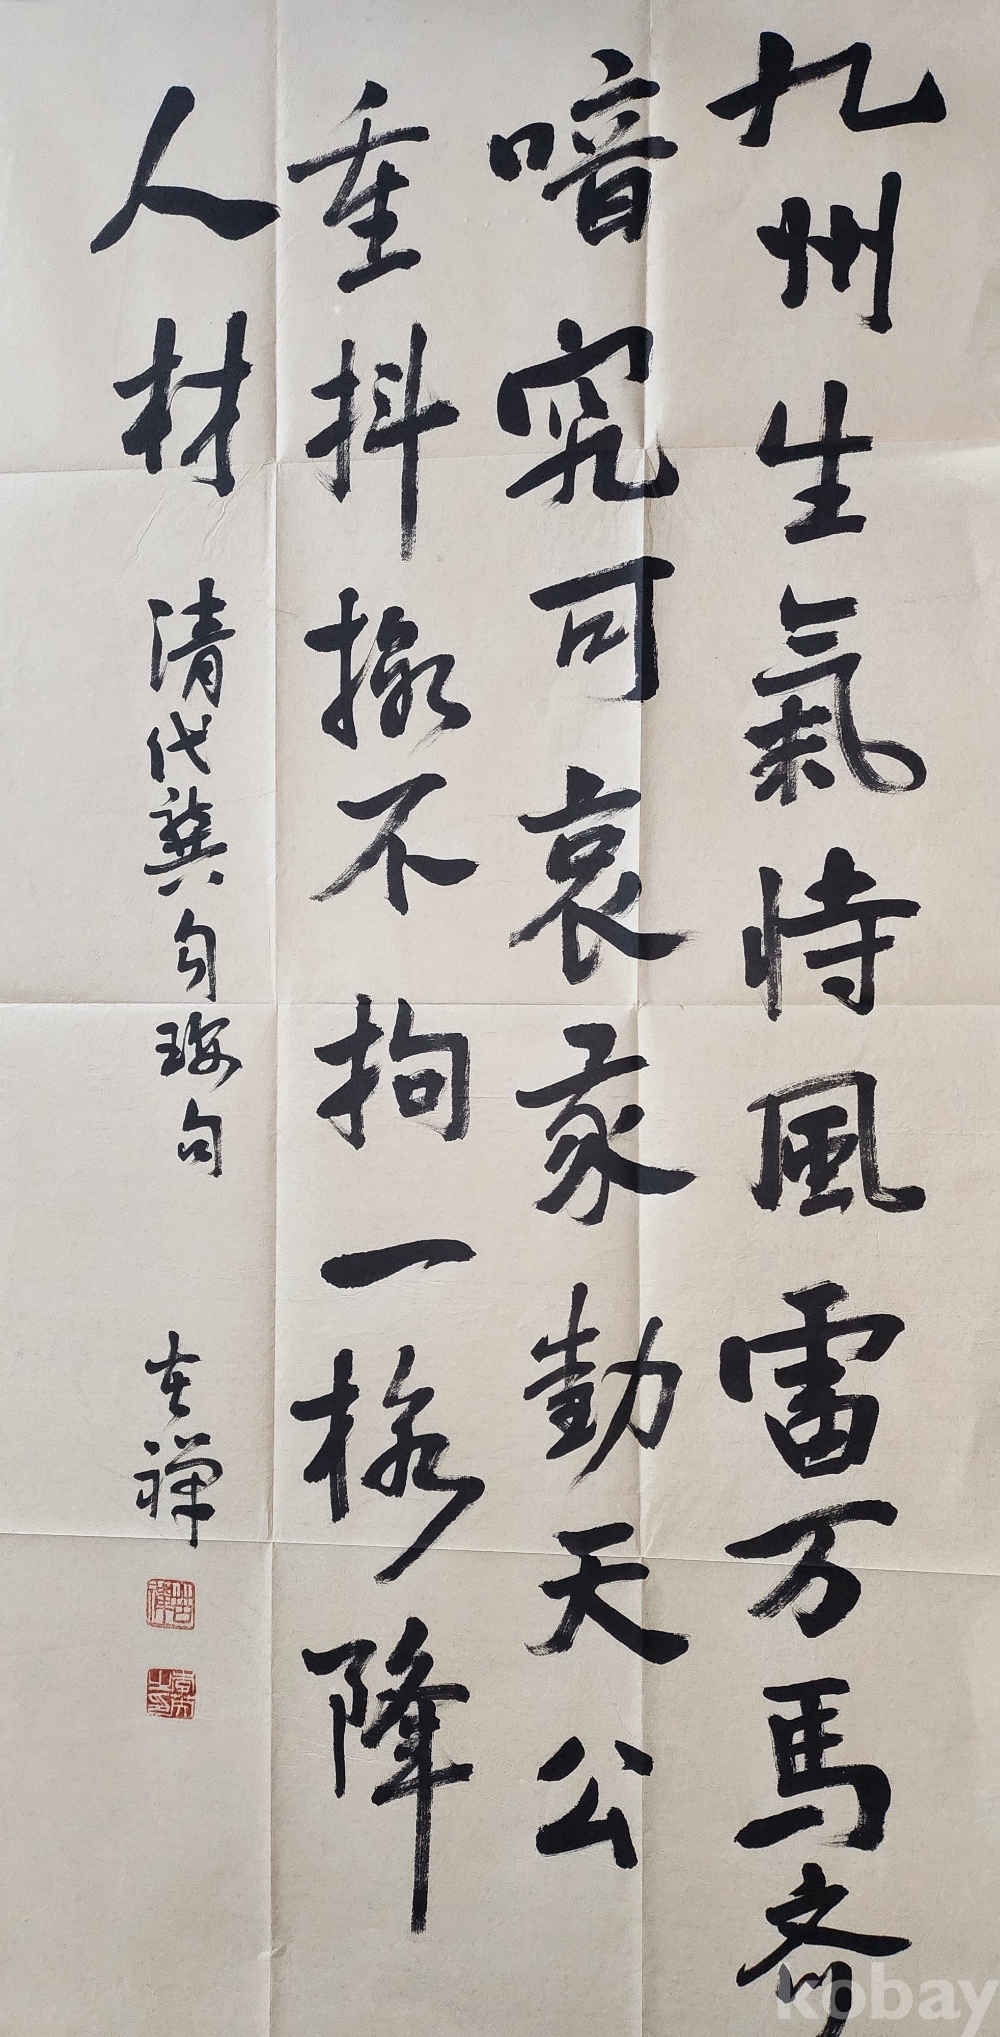 九州生氣恃風雷万馬齐
喑究可哀我勸天公
重抖擞不拘一格降
人材
清代龔自珍句
禅
kobay